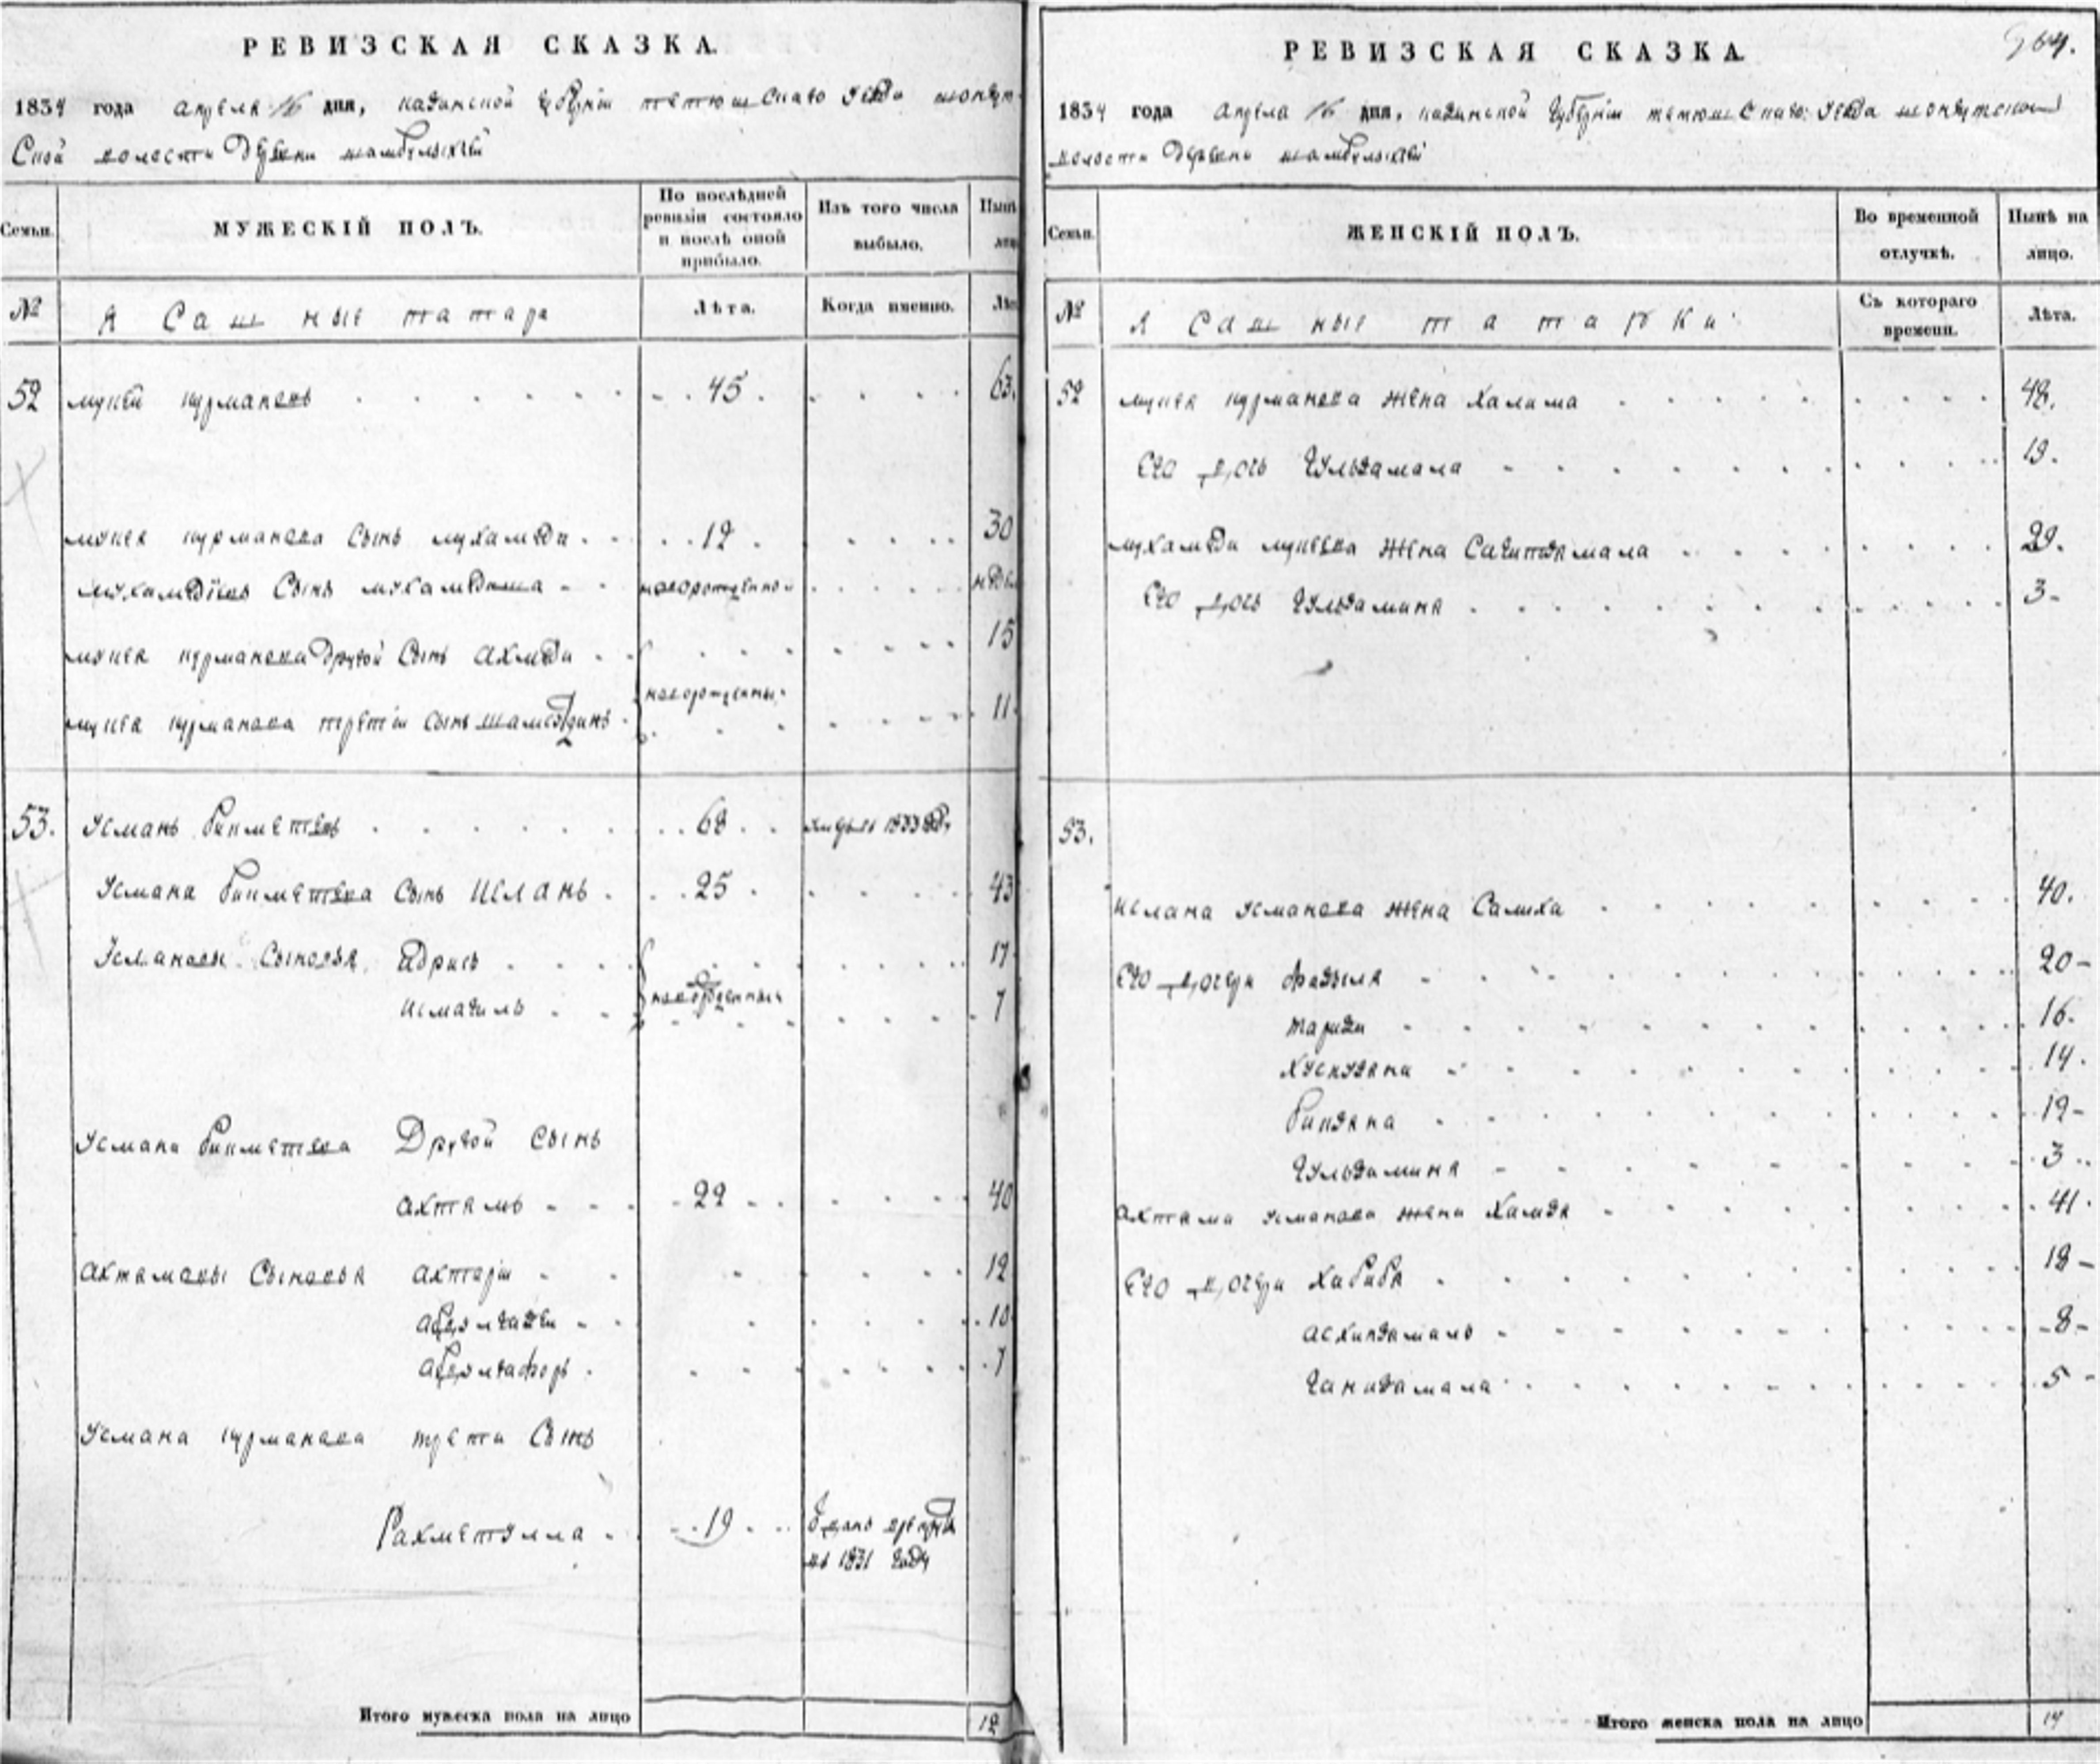 РЕВИЗСКАЯ СКАЗКА.
1834 года апреля 16 дня, казанской губернии тетюшскаго уезда шонгут-
ской волости деревни шамбулыхчи
Семьи. МУЖЕСКІЙ ПОЛЪ. По послѣдней ревизіи состояло и послѣ оной прибыло. Изъ того числа выбыло. Нынѣ лиц
№ Ясашные татара Лѣта. Когда именно. Лѣт
52 мукей курманевъ 45. 63.
мукея курманева сынъ мухамеди 12. 30
мухамедіевъ сынъ мухамедша новорожденной нед.
мукея курманева другой сынъ ахмеди 15
новорожденны
мукея курманева третіи сынъ шамседдинъ 11
53. Усманъ бикметевъ 68 умеръ въ 1833 год.
Усмана бикметева сынъ Исланъ 25 43
Исланевы сыновья Идрисъ 17
новорожденныя
исмагилъ 7
Усмана бикметева Другой сынъ
ахтямъ 22 40
Ахтямовы сыновья ахтяри 12
абдулгази 10
абдулгафоръ 7
Усмана курманева трети сынъ
Рахметулла 19 в рекруты
въ 1831 году
Итого мужеска пола на лицо 12
РЕВИЗСКАЯ СКАЗКА 964.
1834 года апреля 16 дня, казанской губернии тетюшскаго уезда шонгутской
волости деревни шамбулыхчи
Семьи. ЖЕНСКІЙ ПОЛЪ. Во временной отлучкѣ. Нынѣ на лицо.
№ Ясашные татарки Съ котораго времени. Лѣта.
52 мукея курманева жена Халима 48.
Его дочь Гульзамала 19.
мухамеди мукеева жена Сагитзямала 29.
Его дочь Гульзамина 3
53.
Ислана усманова жена Салиха 40.
Его дочери фазыля 20
тариди 16.
Хуснузяни 14.
бикзяна 12
Гульзаминя 3
ахтяма усманова жена Хамдя 41.
Его дочери Хабибя 18
асхизамалъ 8
Ганизамала 5
Итого женска пола на лицо 14